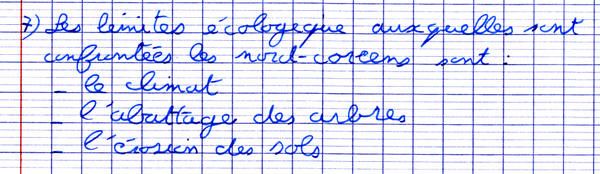 7) Les limites écologique auxquelles sont
confrontées les nord-coréens sont :
_ le climat
_ l'abattage des arbres
_ l'érosion des sols